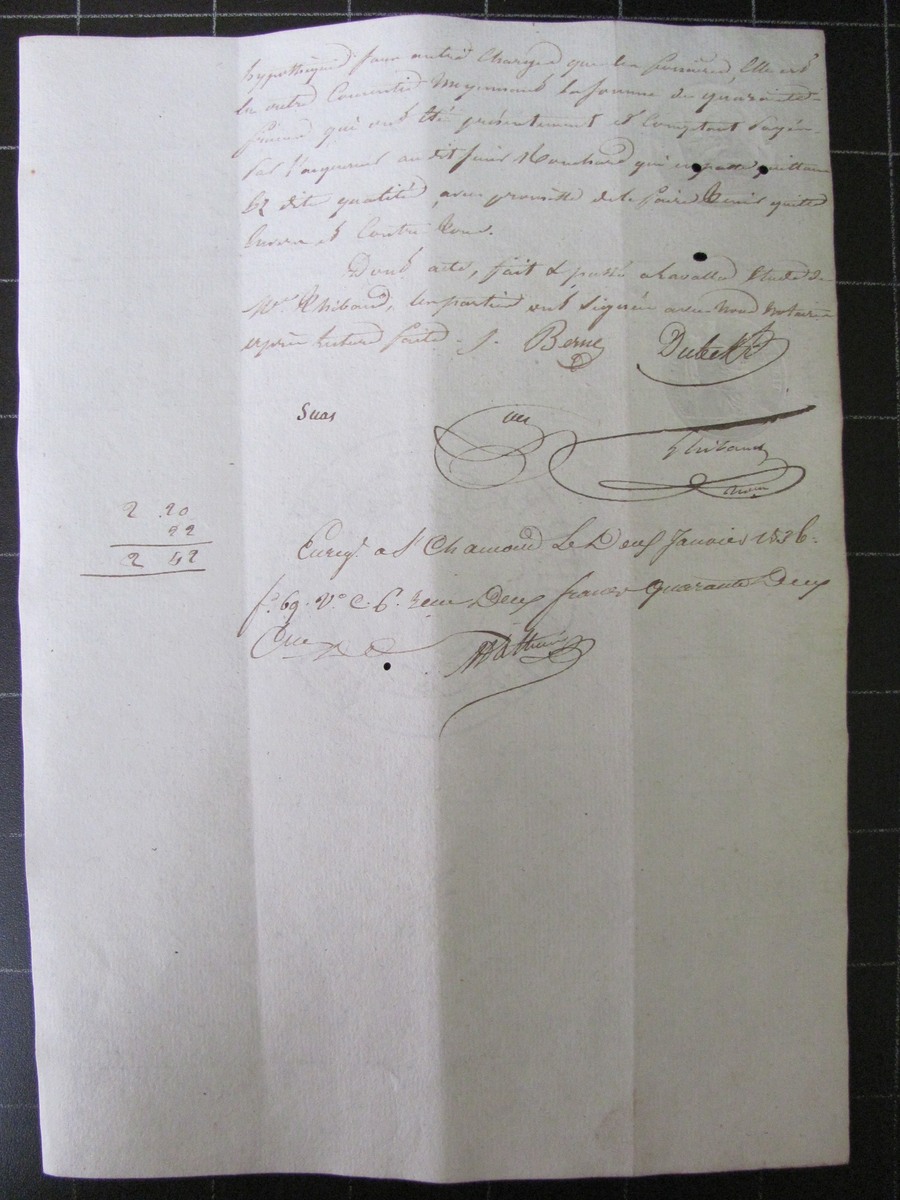 hypothèqué sans autre charges que les foncières, Elle est
en outre Consentie moyennant la somme de quarante
francs qui ont été présentement et Comptant payés
par l'acquereur au dit sieur qui en passe quittance
En dite qualité, avec promesse de le faire tenir quitte
Envers et Contre tous.
Dont acte, fait & passé a Lavalla Etude de
Me Thibaud, les parties ont signées avec nous notaires
après lecture faite. J. Berne
Thibaud
2 20
22
2 42
Enregé a St Chamond Le Deux Janvier 1836.
fo. 69. Vo. C. 6. reçu Deux francs Quarante Deux